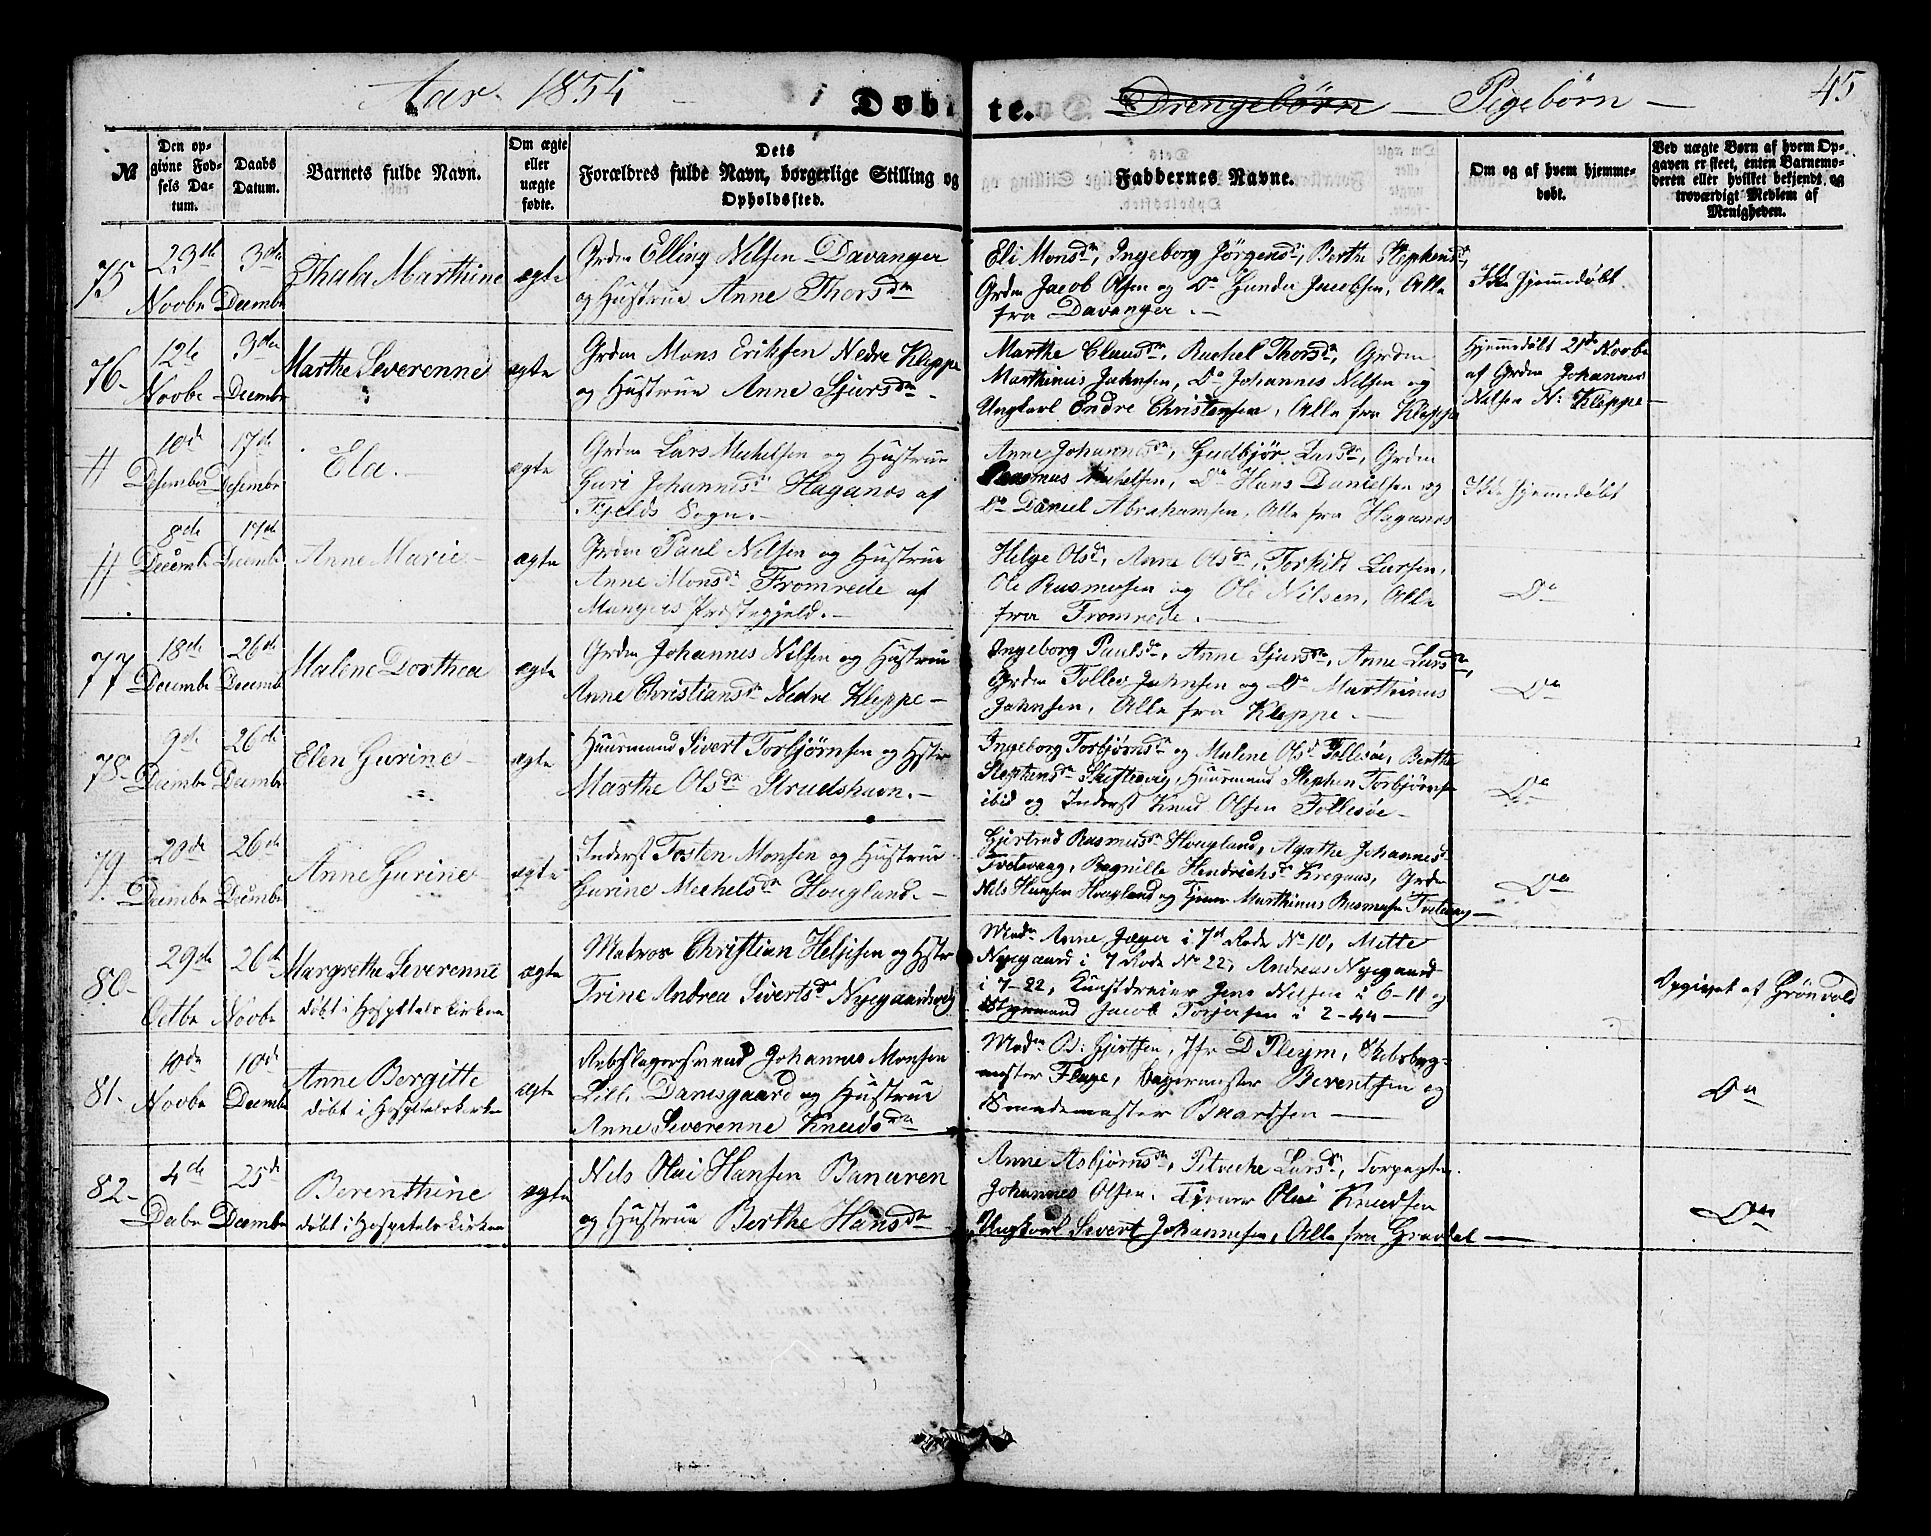 Aar 1854 — Døbte. Drengebørn — Pigebørn — 45
№
Den opgivne Fødsels Datum.
Daabs Datum.
Barnets fulde Navn.
Om ægte eller uægte fødte.
Dets Forældres fulde Navn, borgerlige Stilling og Opholdssted.
Faddernes Navne.
Om og af hvem hjemmedøbt.
Ved uægte Børn af hvem Opgaven er skeet, enten Barnemoderen eller hvilket bekjendt og troværdigt Medlem af Menigheden.
75
23de Novbr
3die Decembr
Thala Marthine
ægte
Grdm Elling Nilsen Davanger
og Hustrue Anne Thorsdr
Eli Monsdr, Ingeborg Jørgensdr, Berthe Stephensdr,
Grdm Jacob Olsen og Do Gunder Jacobsen, Alle
fra Davanger. —
Ikke hjemmedøbt
76-
12te Novbr
3die Decembr
Marthe Severenne
ægte
Grdm Mons Eriksen Nedre Kleppe
og Hustrue Anne Sjursdr -
Marthe Clausdr, Rachel Thorsdr, Grdm
Marthinus Jahnsen, Do Johannes Nilsen og
Ungkarl Endre Christensen, Alle fra Kleppe
Hjemmedøbt 21de Novbr
af Grdm Johannes
Nilsen N: Kleppe —
11
10de Desember
17de Desembr
Ela.
ægte
Grdm Lars Michelsen og Hustrue
Guri Johannesdr Haganes af
Fjelds Sogn. —
Anne Johannesdr, Gudbjør Larsdr, Grdm
Rasmus Michelsen, Do Hans Danielsen og
Do Daniel Abrahamsen, Alle fra Haganes
Ikke hjemmedøbt
11
8de Decembr
17de Decembr
Anne Marie -
ægte
Grdm Paul Nilsen og Hustrue
Anne Monsdr Fromrede af
Mangers Præstegjeld. —
Helge Olsdr, Anne Olsdr, Torkild Larsen,
Ole Rasmusen og Ole Nilsen, Alle
fra Fromrede. —
Do
77
18de Decembr
26de Decembr
Malene Dorthea
ægte
Grdm Johannes Nilsen og Hustrue
Anne Christiansdr Nedre Kleppe —
Ingeborg Paulsdr, Anne Sjursdr, Anne Larsdr,
Grdm Tollev Jahnsen og Do Marthinus
Jahnsen, Alle fra Kleppe. —
Do
78-
9de Decembr
26de Decembr
Elen Gurine -
ægte
Huusmand Sivert Torbjørnsen og Hstr
Marthe Olsdr Strudshavn. —
Ingeborg Torbjørnsdr og Malene Olsdr Follesøe, Berthe
Stephensdr Skiftesvig, Huusmand Stephen Torbjørnsen
ibid og Inderst Knud Olsen Follesøe —
Do
79
20de Decembr
26de Decembr
Anne Gurine
ægte
Inderst Tosten Monsen og Hustrue
Gurine Mechelsdr Hougland. —
Gjertrud Rasmusdr Hougland, Agathe Johannesdr
Tvetevaag, Ragnille Hendrichsdr Kregnes, Grdm
Nils Hansen Hougland og Tjener Marthinus Rasmusen Tvetevaag —
Do
80-
29de Octbr
26de Novbr
Margrethe Severenne
døbt i Hospitalskirken
ægte
Matros Christian Heljesen og Hstr
Trine Andrea Sivertsdr Nyegaardsvei
Madm Anne Jæger i 7de Rode No 10, Mette
Nyegaard i 7 Rode No 22, Andreas Nyegaard
i 7-22, Kunstdreier Jens Nilsen i 6-11 og
Jacob Torjersen i 2-44 —
Opgivet af Grönvold
81-
10de Novbr
10de Decembr
Anne Bergitte
døbt i Hospitalskirken
ægte
Rebslagersvend Johannes Monsen
Lille Damsgaard og Hustrue
Anne Severenne Knudsdr
Madm B: Gjertsen, Jfr D Pleym, Skibsbyg-
mester Flege, Bagermester Berentsen og
Smedemester Baardsen —
Do
82-
4de Debr
25de Decembr
Berenthine
døbt i Hospitalskirken
ægte
Nils Olai Hansen Banuren
og Hustrue Berthe Hansdr
Anne Asbjørnsdr, Larsdr, Forpagter
Johannes Olsen, Tjener Olai Knudsen
Ungkarl Sivert Johannesen, Alle fra Gravdal —
Do